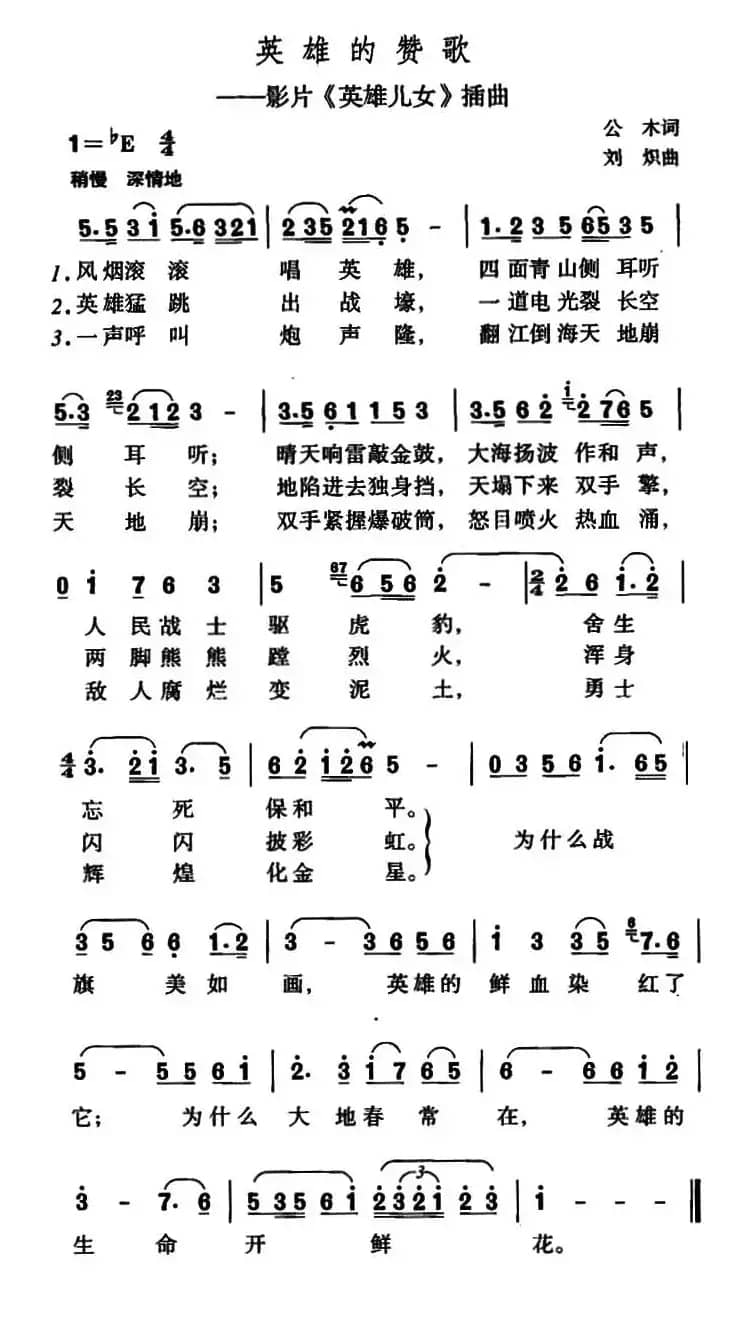 英雄的赞歌
——影片《英雄儿女》插曲
1=♭E 4/4
公木词
刘炽曲
稍慢 深情地
5.5 3i 5.6 321 | 235 216 5 - | 1.2 35 65 35 |
1.风烟滚滚 唱英雄, 四面青山侧耳听
2.英雄猛跳 出战壕, 一道电光裂长空
3.一声呼叫 炮声隆, 翻江倒海天地崩
5.3 23 212 3 - | 3.5 61 15 3 | 3.5 62 i 276 5 |
侧耳听; 晴天响雷敲金鼓, 大海扬波作和声,
裂长空; 地陷进去独身挡, 天塌下来双手擎,
天地崩; 双手紧握爆破筒, 怒目喷火热血涌,
0 i 7 6 3 | 5 67 656 2 - | 2/4 2 6 i.2 |
人民战士驱虎豹, 舍生
两脚熊熊蹚烈火, 浑身
敌人腐烂变泥土, 勇士
4/4 3. 2i 3. 5 | 62 i26 5 - | 0356 i. 65 |
忘死保和平。
闪闪披彩虹。 为什么战
辉煌化金星。
35 6 6 1.2 | 3 - 36 56 | i 3 35 6 7.6 |
旗美如画, 英雄的鲜血染红了
5 - 55 6i | 2. 3 i7 65 | 6 - 66 i2 |
它; 为什么大地春常在, 英雄的
3 - 7. 6 | 535 6i 2321 23 | i - - - ‖
3
生命开鲜花。